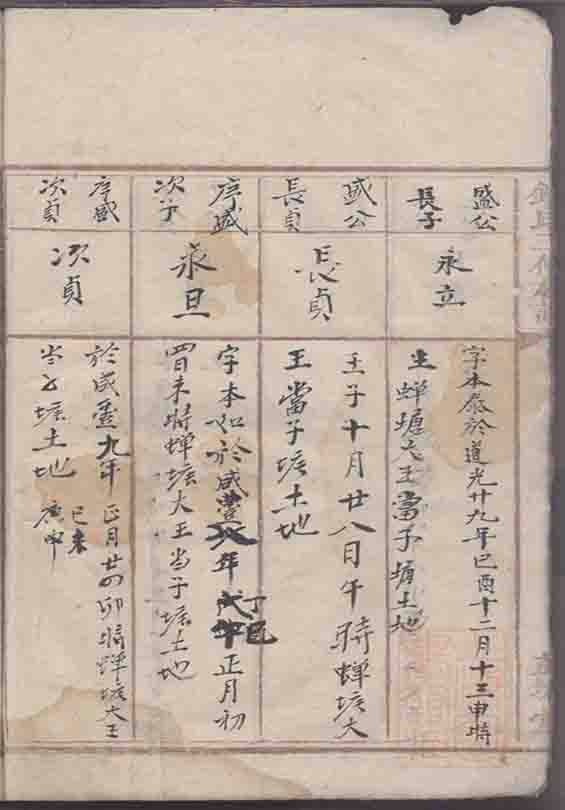 盛公
長子
永立
字本泰於道光廿九年己酉十二月十三申時
生蟬塘大王當子塘土地
盛公
長貞
長貞
壬子十月廿八日午時蟬塘大
王當子塘土地
序盛
次子
永旦
字本如於咸豐年丁巳正月初
四日未時蟬塘大王当子塘土地
序盛
次貞
次貞
於咸豐九年己未正月廿四卯時蟬塘大王
当子塘土地
庚申